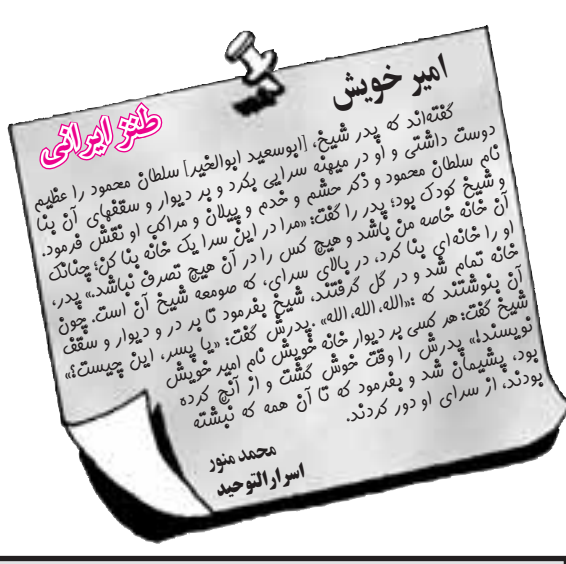 امیر خویش
طنز ایرانی
گفته‌اند که پدر شیخ، [ابوسعید ابوالخیر] سلطان محمود را عظیم
دوست داشتی و او در میهنه سرایی بکرد و بر دیوار و سقفهای آن بنا
نام سلطان محمود و ذکر حشم و خدم و پیلان و مراکب او نقش فرمود.
و شیخ کودک بود؛ پدر را گفت: «مرا در این سرا یک خانه بنا کن؛ چنانک
آن خانه خاصه من باشد و هیچ کس را در آن هیچ تصرف نباشد.» پدر،
او را خانه‌ای بنا کرد، در بالای سرای، که صومعه شیخ آن است. چون
خانه تمام شد و در گل گرفتند، شیخ بفرمود تا بر در و دیوار و سقف
آن بنوشتند که :«الله، الله، الله». پدرش گفت: «یا پسر، این چیست؟»
شیخ گفت: هر کسی بر دیوار خانه خویش نام امیر خویش
نویسند!» پدرش را وقت خوش گشت و از آنچ کرده
بود، پشیمان شد و بفرمود که تا آن همه که نبشته
بودند، از سرای او دور کردند.
محمد منور
اسرارالتوحید